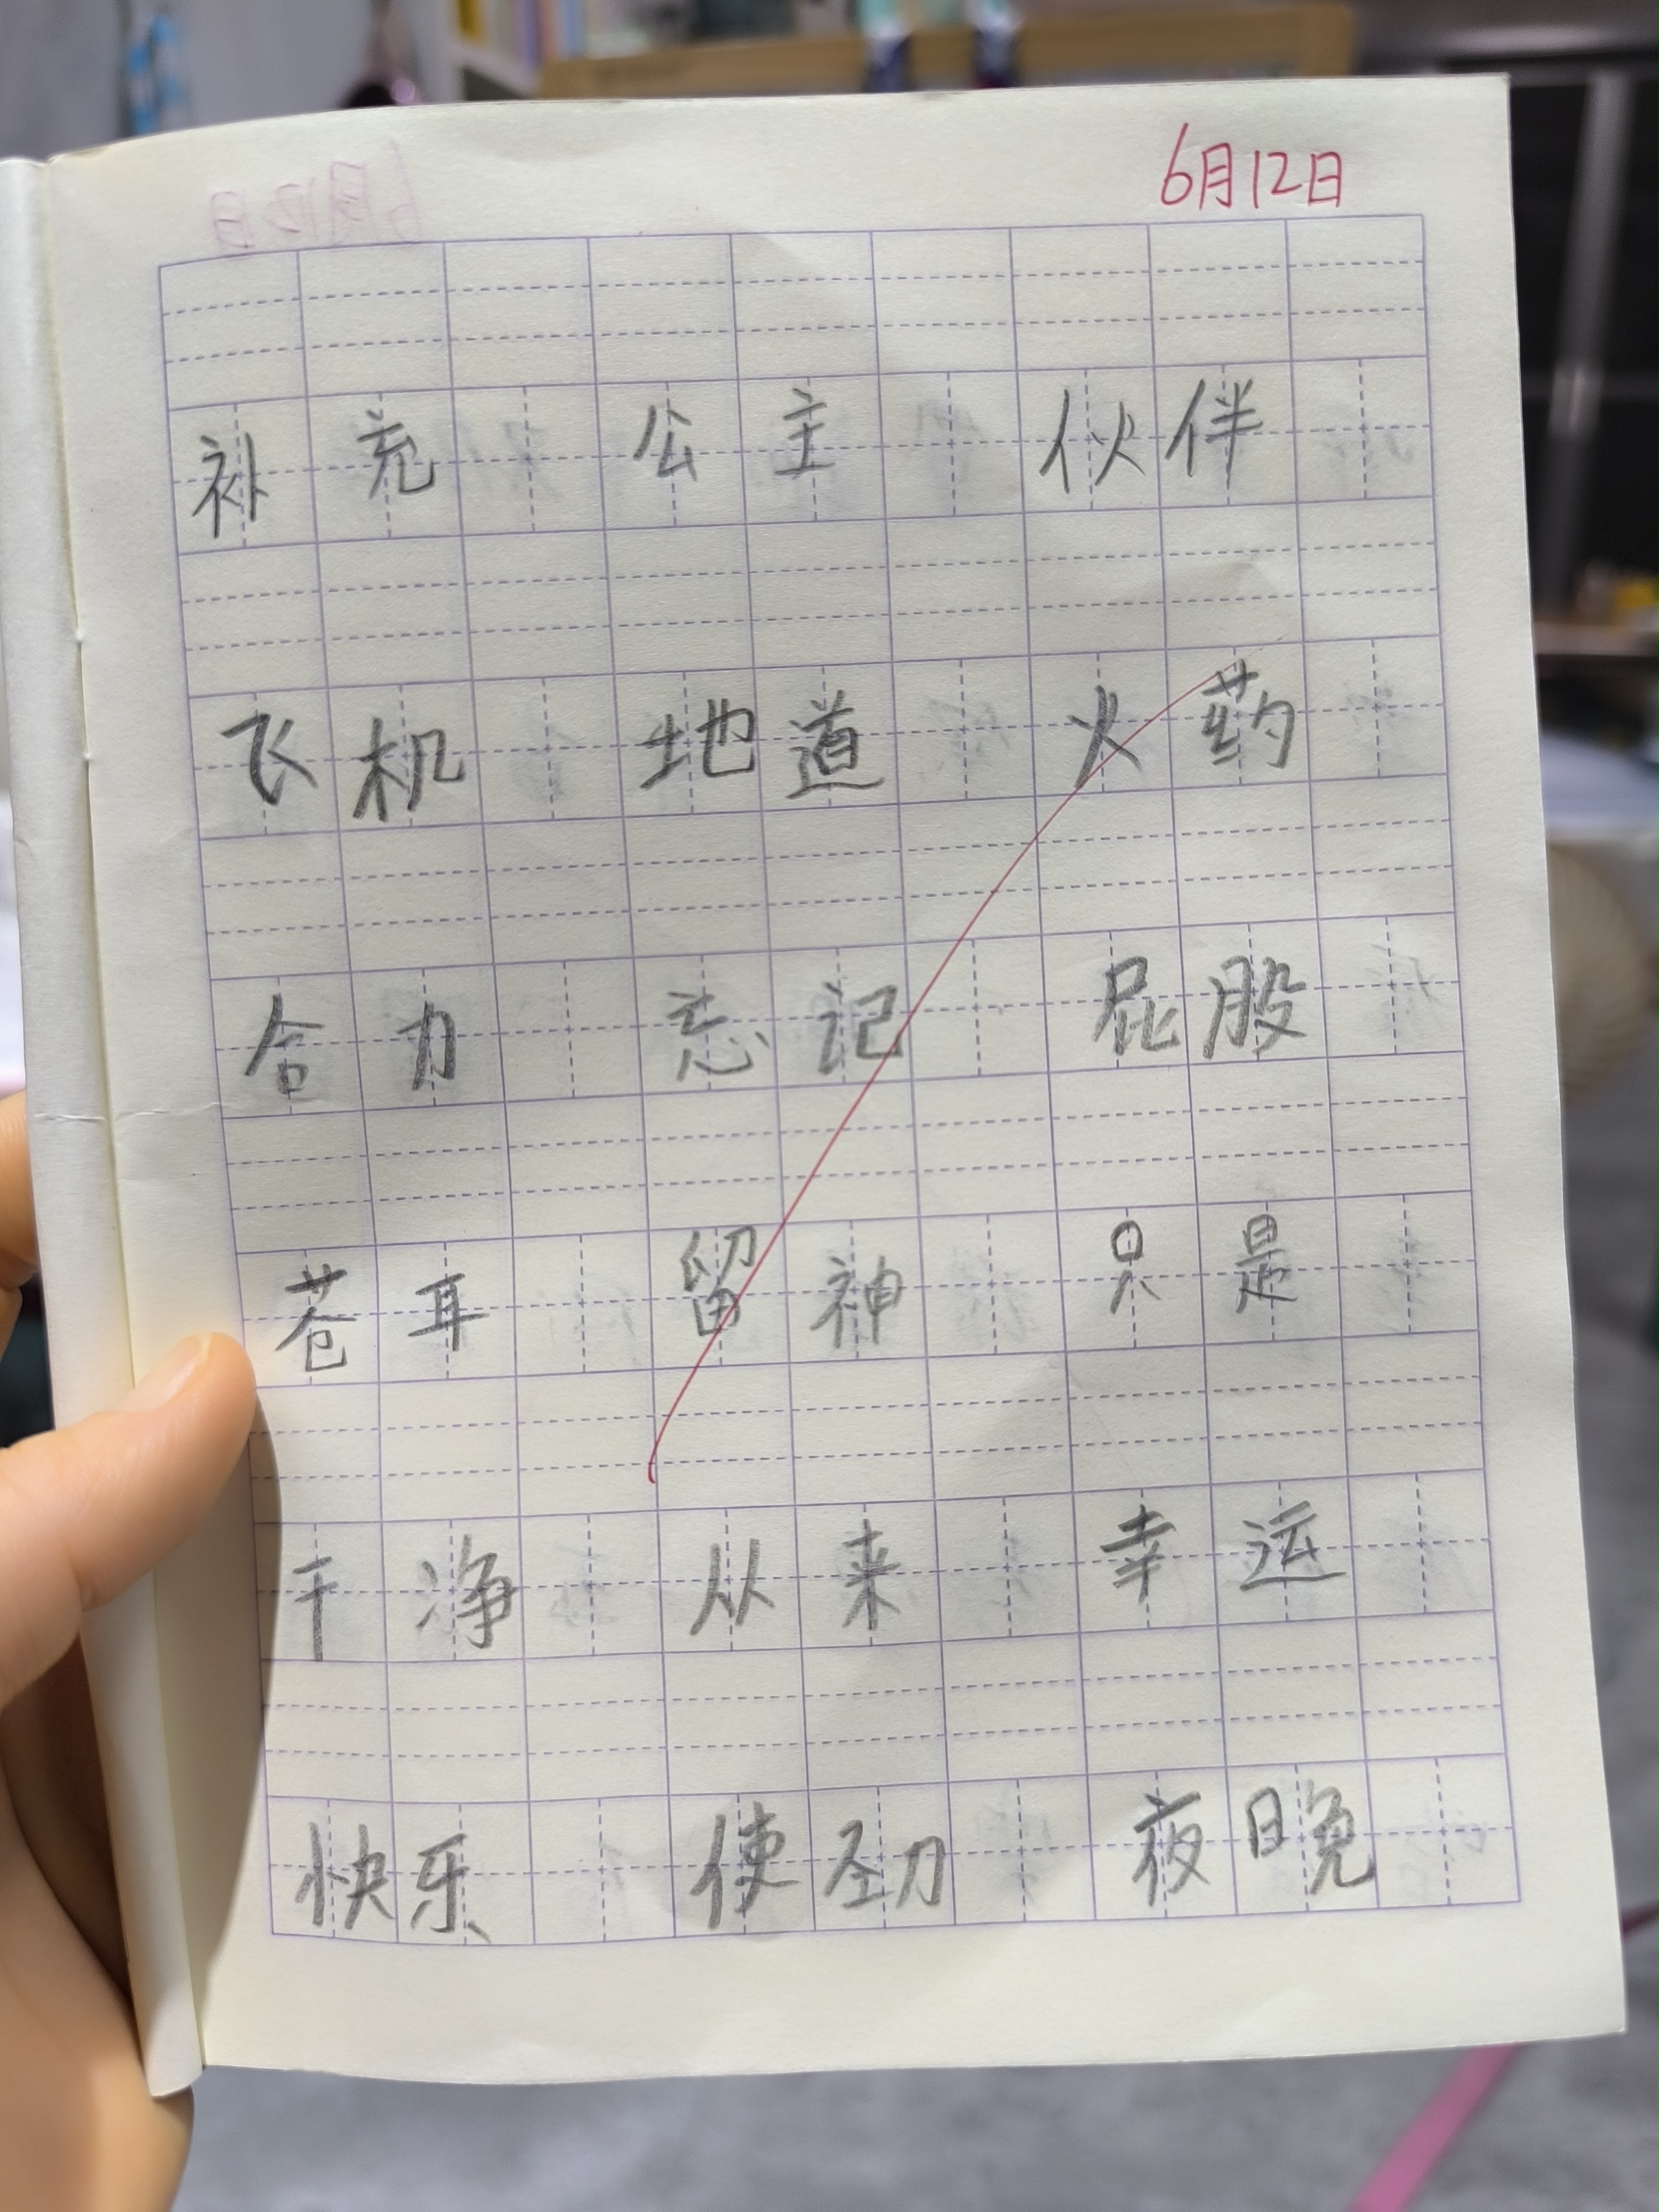 6月12日
补充 公主 伙伴
飞机 地道 火药
合力 忘记 屁股
苍耳 留神 只是
干净 从来 幸运
快乐 使劲 夜晚